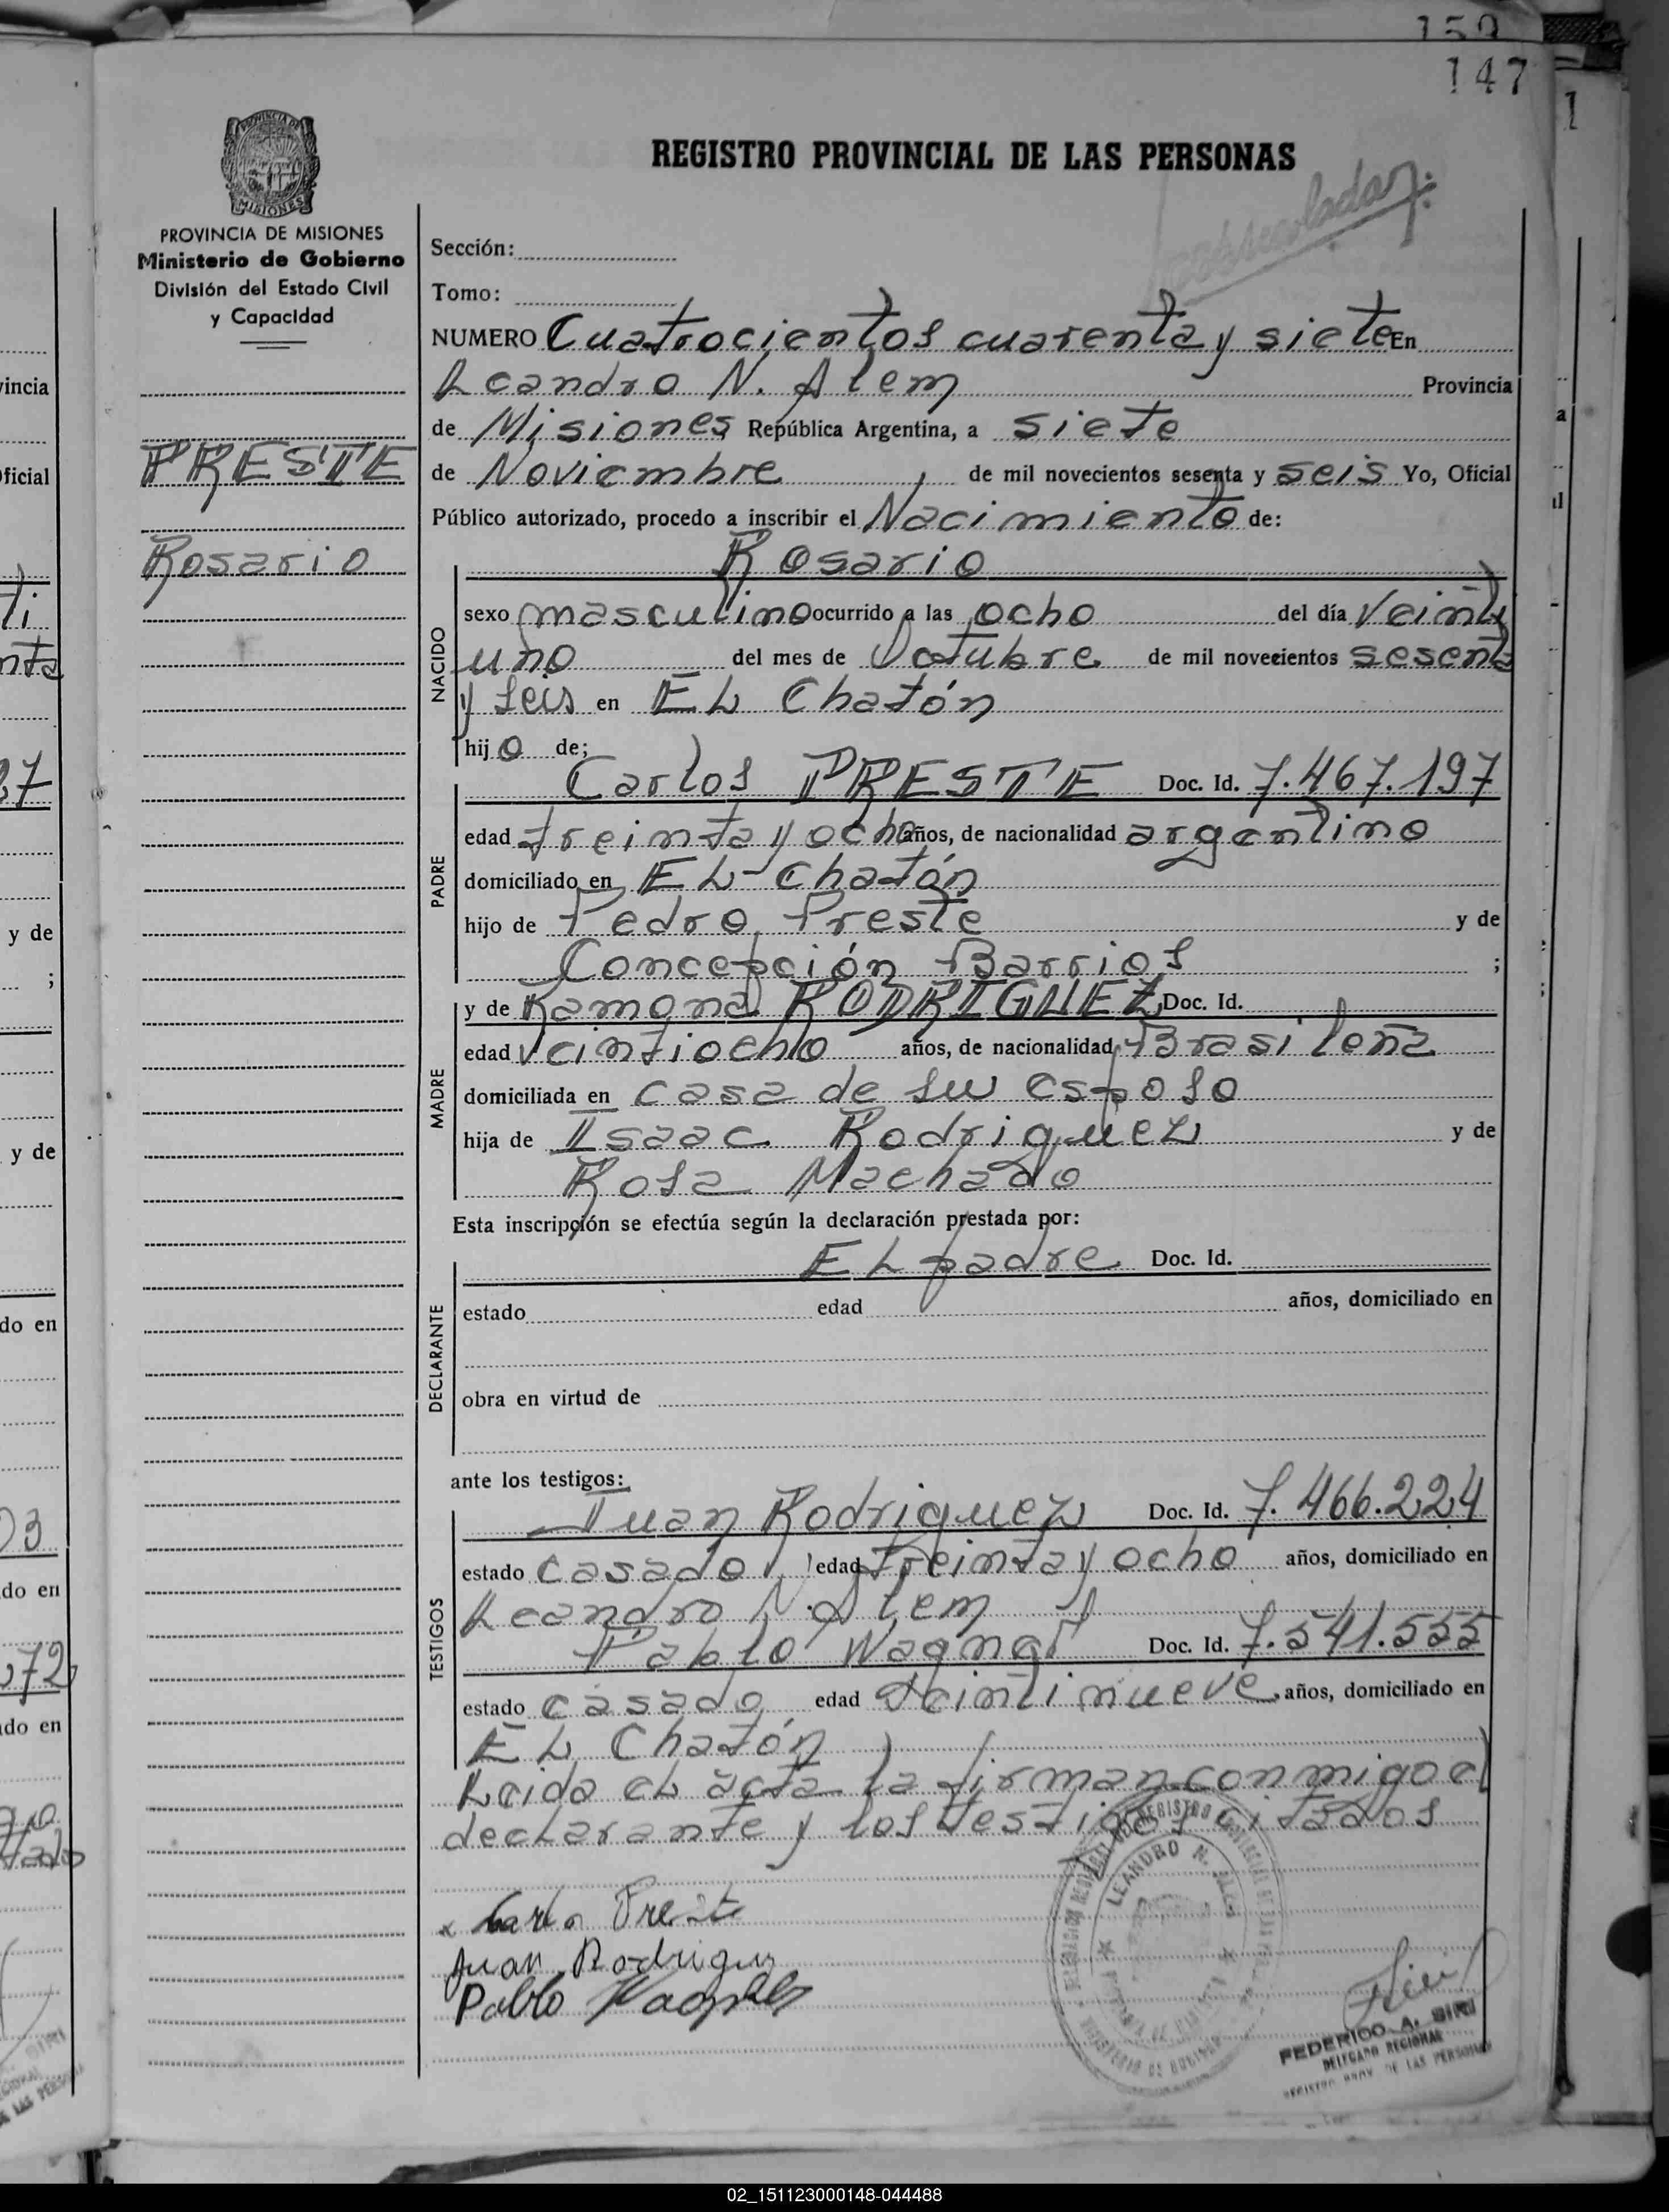 159
147
1
REGISTRO PROVINCIAL DE LAS PERSONAS
PROVINCIA DE MISIONES
Ministerio de Gobierno
División del Estado Civil
y Capacidad
PRESTE
Rosario
Sección:
Tomo:
NUMERO Cuatrocientos cuarenta y siete En
Leandro N. Alem Provincia
de Misiones República Argentina, a siete
de Noviembre, de mil novecientos sesenta y seis Yo, Oficial
Público autorizado, procedo a inscribir el Nacimiento de:
Rosario
NACIDO
sexo masculino ocurrido a las ocho del día Veinti
uno del mes de Octubre de mil novecientos sesenta
y seis en EL Chatón
hijo de;
PADRE
Carlos PRESTE Doc. Id. 7.467.197
edad treinta y ocho años, de nacionalidad argentino
domiciliado en EL Chatón
hijo de Pedro Preste y de
Concepción Barrios ;
MADRE
y de Ramona RODRIGUEZ Doc. Id.
edad Veintiocho años, de nacionalidad Brasileña
domiciliada en casa de su esposo
hija de Isaac Rodriguez y de
Rosa Machado
Esta inscripción se efectúa según la declaración prestada por:
DECLARANTE
EL padre Doc. Id.
estado edad años, domiciliado en
obra en virtud de
ante los testigos:
TESTIGOS
Juan Rodriguez Doc. Id. 7.466.224
estado casado, edad Treinta y ocho años, domiciliado en
Leandro N. Alem y
Pablo Doc. Id. 7.541.555
estado casado edad Veintinueve, años, domiciliado en
EL Chatón
Leida el acta la firman conmigo el
declarante y los testigos citados
x Carlos Preste
Juan Rodriguez
Pablo
LEANDRO N. ALEM
FEDERICO A. SIRI
DELEGADO REGIONAL
REGISTRO PROV. DE LAS PERSONAS
02_151123000148-044488